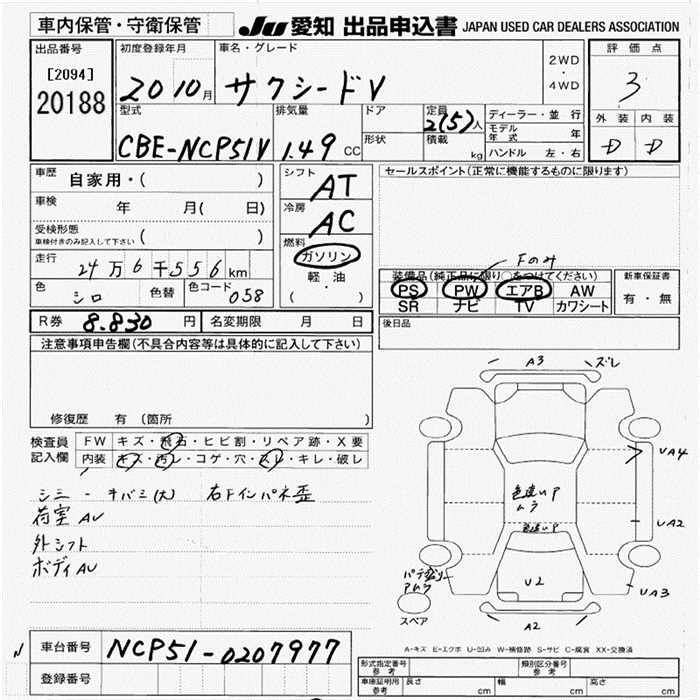 車内保管・守衛保管
JU 愛知 出品申込書 JAPAN USED CAR DEALERS ASSOCIATION
出品番号
[2094]
20188
初度登録年月
20 10月
車名・グレード
サクシードV
2WD
・
4WD
評価点
3
外装 内装
D D
型式
CBE-NCP51V
排気量
1.49 CC
ドア
形状
定員
2(5)人
積載
kg
ディーラー・並行
モデル年式 年
ハンドル 左・右
車歴 自家用・( )
車検 年 月( 日)
受検形態
車検付きのみ記入して下さい ( )
走行 24万6千556km
色 シロ 色替 色コード 058
シフト AT
冷房 AC
燃料
ガソリン
軽・油
( )
セールスポイント(正常に機能するものに限ります)
Fのみ
装備品(純正品に限り○をつけてください)
PS PW エアB AW
SR ナビ TV カワシート
新車保証書
有・無
R券 8.830円 名変期限 月 日
後日品
注意事項申告欄(不具合内容等は具体的に記入して下さい)
修復歴 有 (箇所 )
検査員記入欄
FW キズ・飛石・ヒビ割・リペア跡・X要
内装 キズ・汚レ・コゲ・穴・スレ・キレ・破レ
シミー キバミ(大) 右Fインパネ歪
荷室AU
外シフト
ボディAU
A3 ズレ
UA4
色違いP
ムラ
UA2
色違いP
U2
UA3
スペア
A2
A-キズ E-エクボ U-凹み W-補修跡 S-サビ C-腐食 XX-交換済
車台番号 NCP51-0207977
登録番号
形式指定番号
参考
類別区分番号
参考
車庫証明用
参考
長さ cm 幅 cm 高さ cm